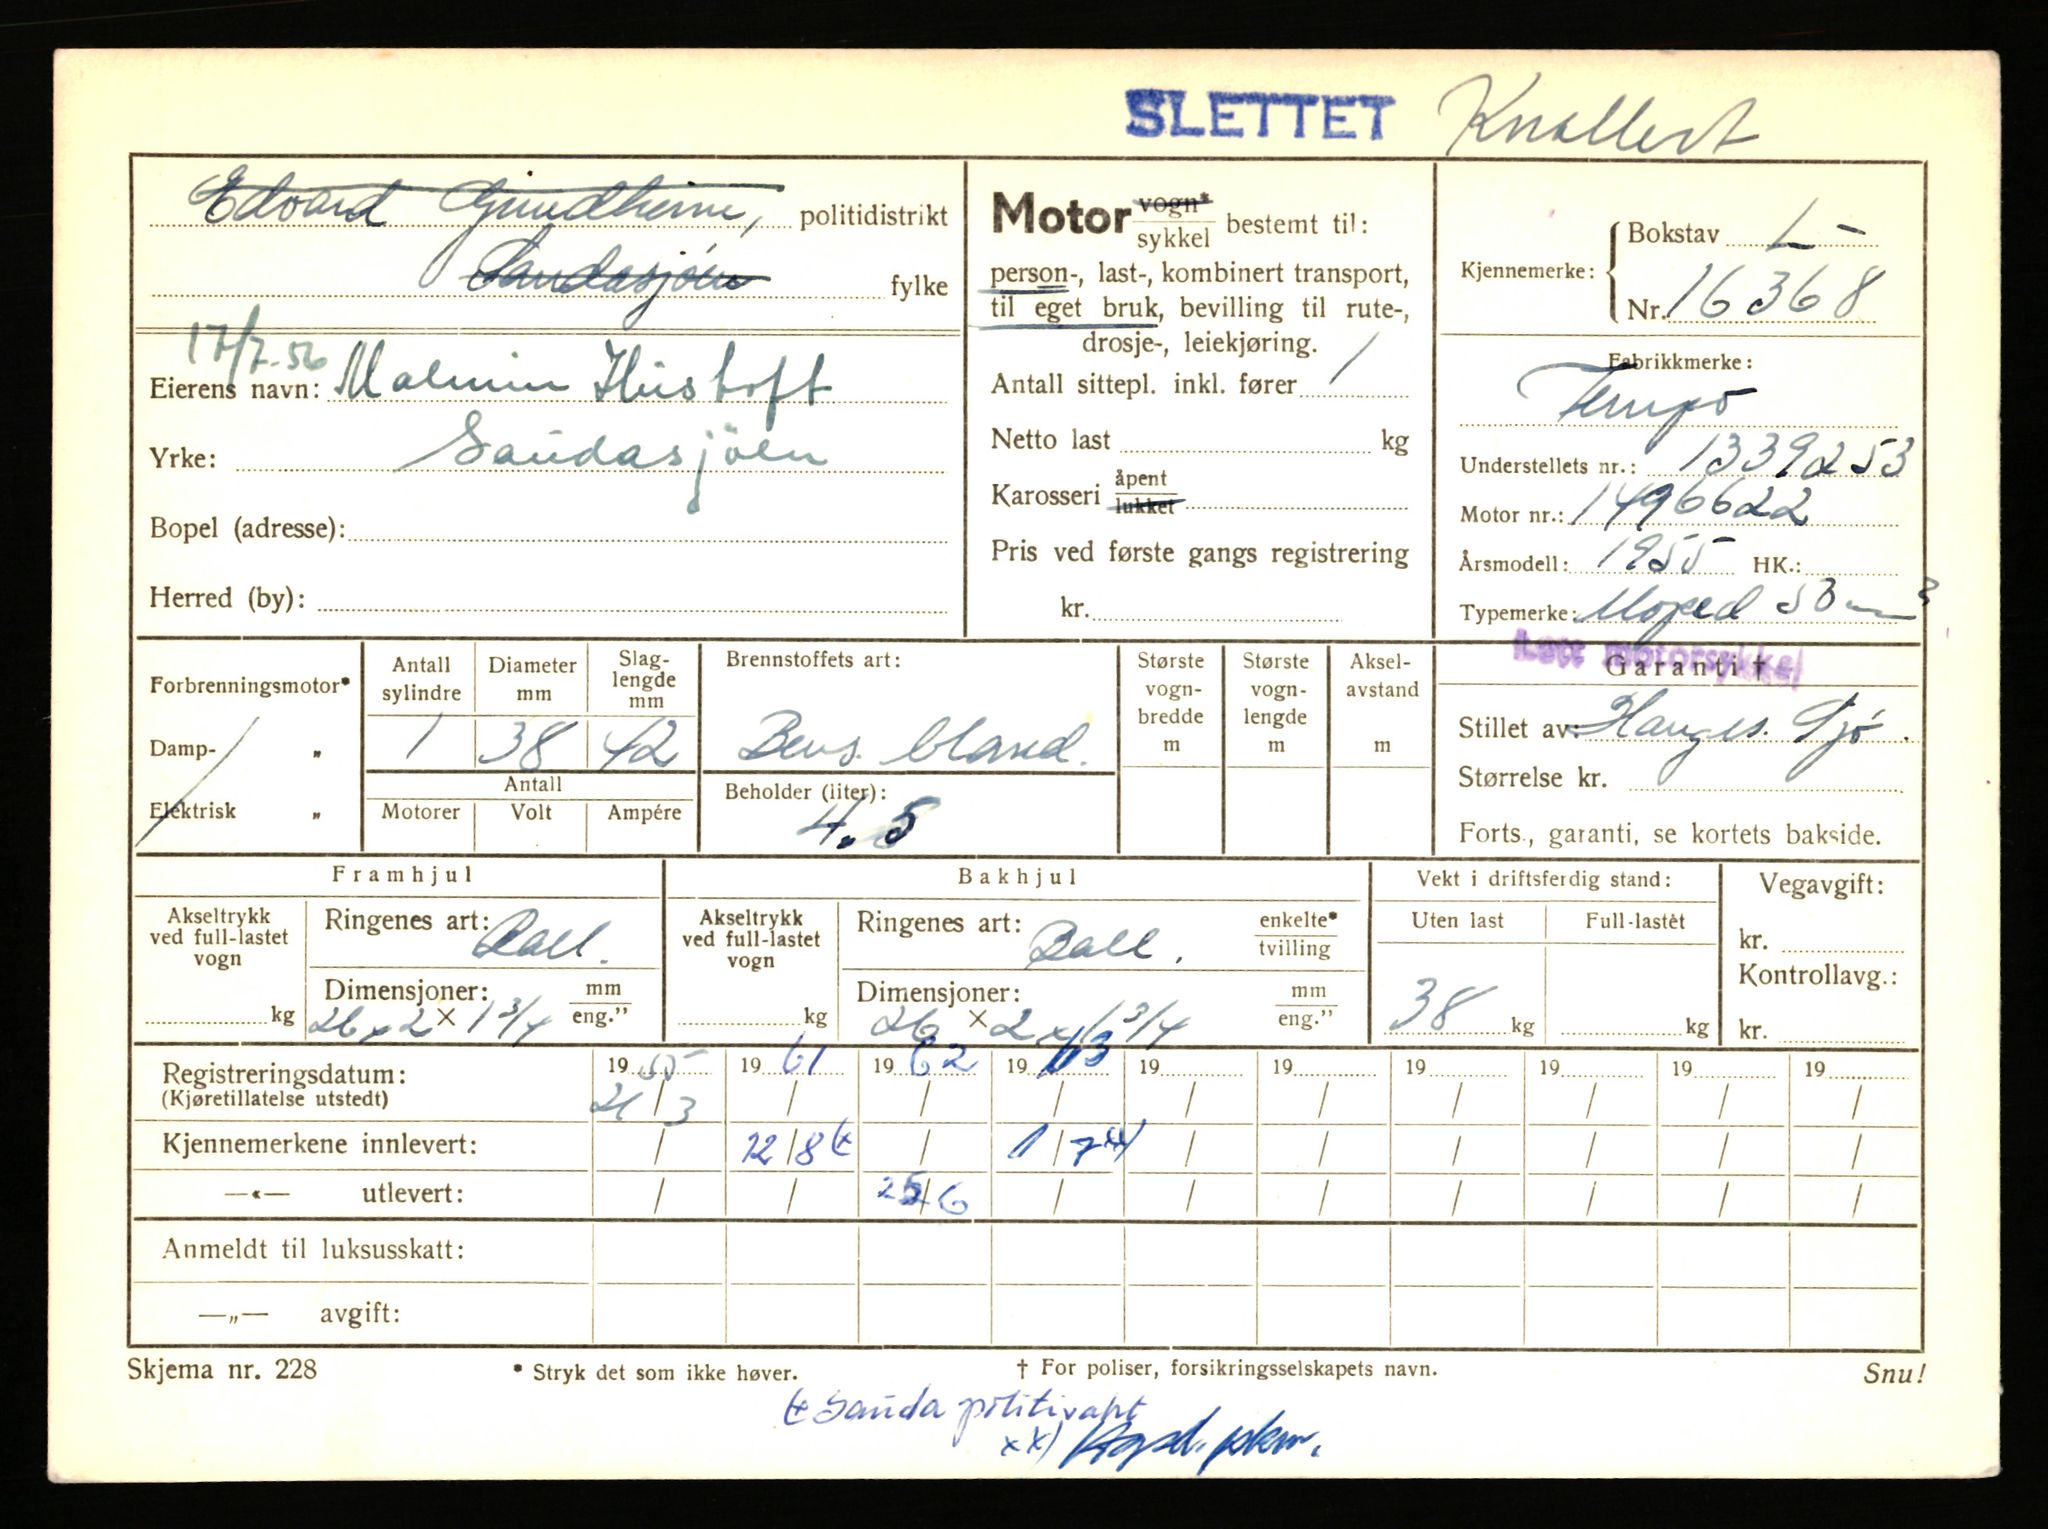 SLETTET Knallert
Edvard politidistrikt
Saudasjöen fylke
17/7-56
Eierens navn: Malmin Hustoft
Yrke: Saudasjöen
Bopel (adresse):
Herred (by):
Motor vogn* sykkel bestemt til:
person-, last-, kombinert transport,
til eget bruk, bevilling til rute-,
drosje-, leiekjøring.
Antall sittepl. inkl. fører 1
Netto last kg
Karosseri åpent lukket
Pris ved første gangs registrering
kr.
Kjennemerke: Bokstav L-
Nr. 16368
Fabrikkmerke:
Tempo
Understellets nr.: 1339253
Motor nr.: 1496622
Årsmodell: 1955 HK.:
Typemerke: Moped 50 cm3
Lett motorsykkel
Forbrenningsmotor*
Damp- „
Elektrisk „
Antall sylindre 1
Diameter mm 38
Slaglengde mm 42
Antall
Motorer Volt Ampére
Brennstoffets art:
Bens. bland.
Beholder (liter):
4.5
Største vognbredde m
Største vognlengde m
Akselavstand m
Garanti †
Stillet av: Hauges. Sjø.
Størrelse kr.
Forts., garanti, se kortets bakside.
Framhjul
Akseltrykk ved full-lastet vogn
kg
Ringenes art: Ball.
Dimensjoner: mm eng."
26 x 2 x 1 3/4
Bakhjul
Akseltrykk ved full-lastet vogn
kg
Ringenes art: Ball. enkelte* tvilling
Dimensjoner: mm eng."
26 x 2 x 1 3/4
Vekt i driftsferdig stand:
Uten last Full-lastet
38 kg kg
Vegavgift:
kr.
Kontrollavg.:
kr.
Registreringsdatum: 1955 1961 1962 1963 19 19 19 19 19 19
(Kjøretillatelse utstedt) 21/3 / / / / / / / / /
Kjennemerkene innlevert: / 12/8 x / 1/7 xx) / / / / / /
—«— utlevert: / / 25/6 / / / / / / /
Anmeldt til luksusskatt:
—„— avgift:
Skjema nr. 228 * Stryk det som ikke høver. † For poliser, forsikringsselskapets navn. Snu!
x Sauda politivakt
xx)